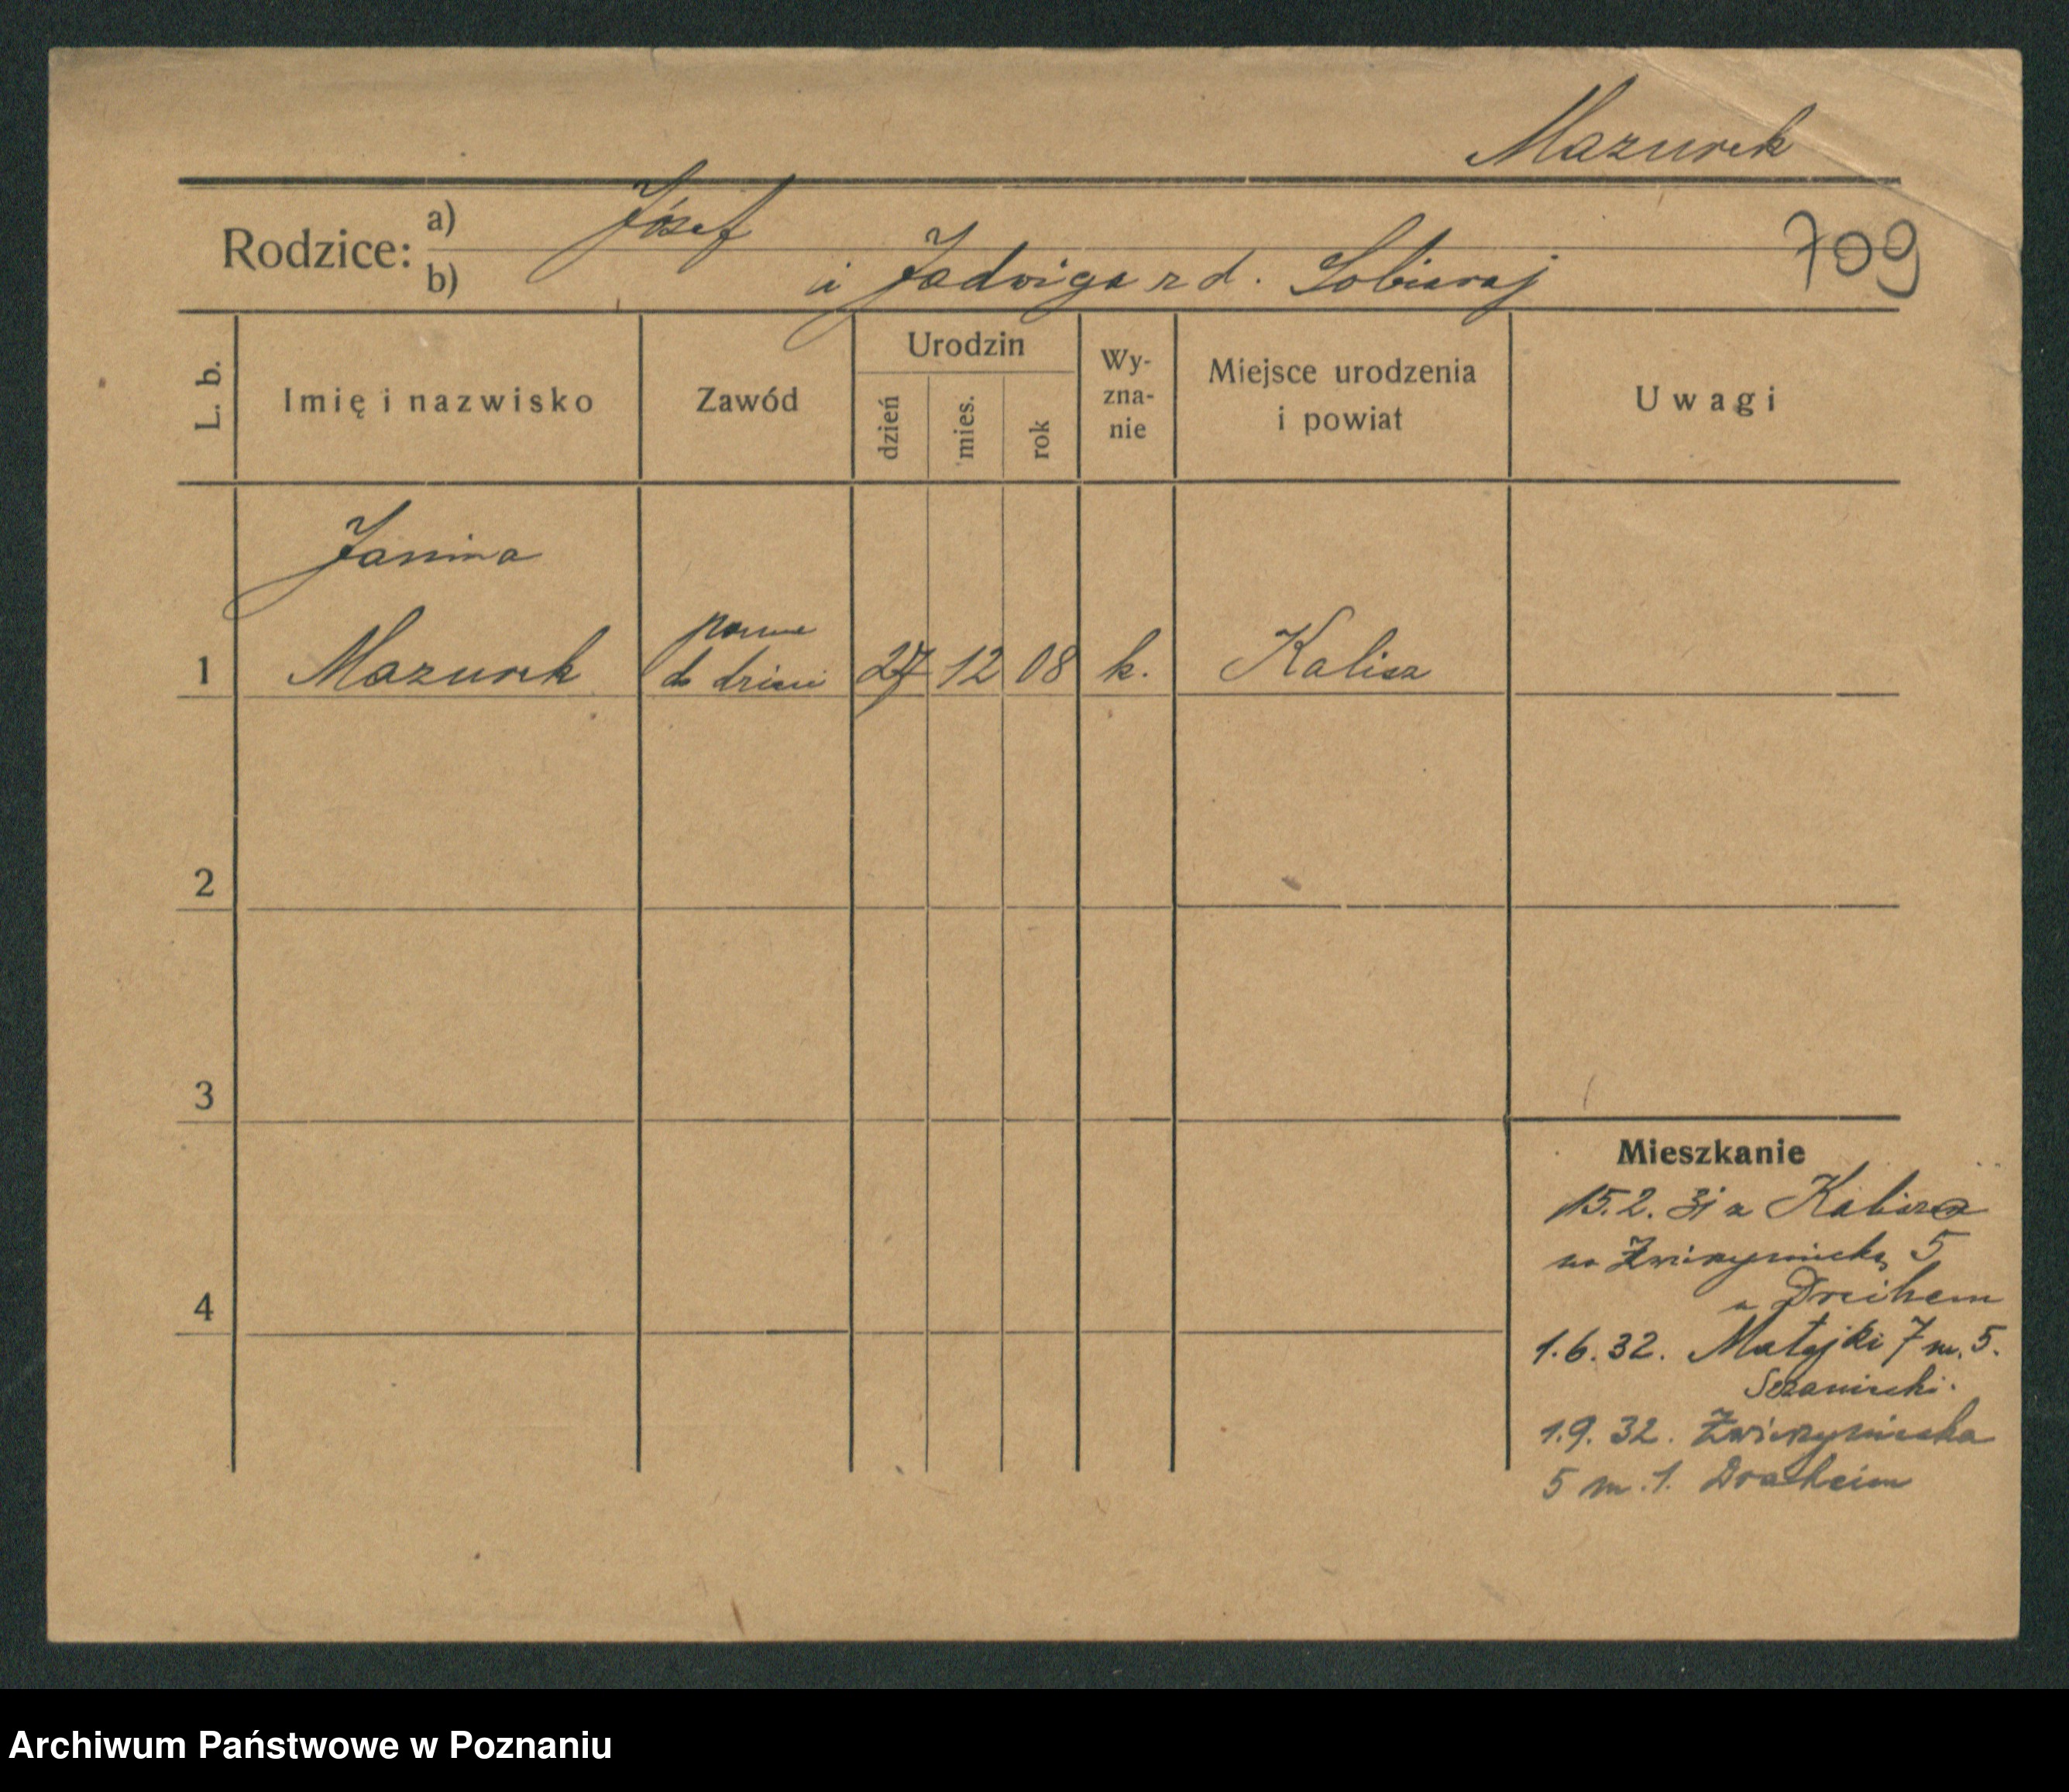 Mazurek
Rodzice: a) Józef
b) i Jadwiga z d. Sobieraj
709
L. b. Imię i nazwisko Zawód Urodzin dzień mies. rok Wy-zna-nie Miejsce urodzenia i powiat Uwagi
Janina
1 Mazurek panna do dzieci 27 12 08 k. Kalisz
2
3
4
Mieszkanie
15.2.31 z Kalisza
na Zwierzyniecką 5
u Dreihem
1.6.32. Matejki 7 m. 5.
1.9.32. Zwierzyniecka
5 m. 1. Draheim
Archiwum Państwowe w Poznaniu